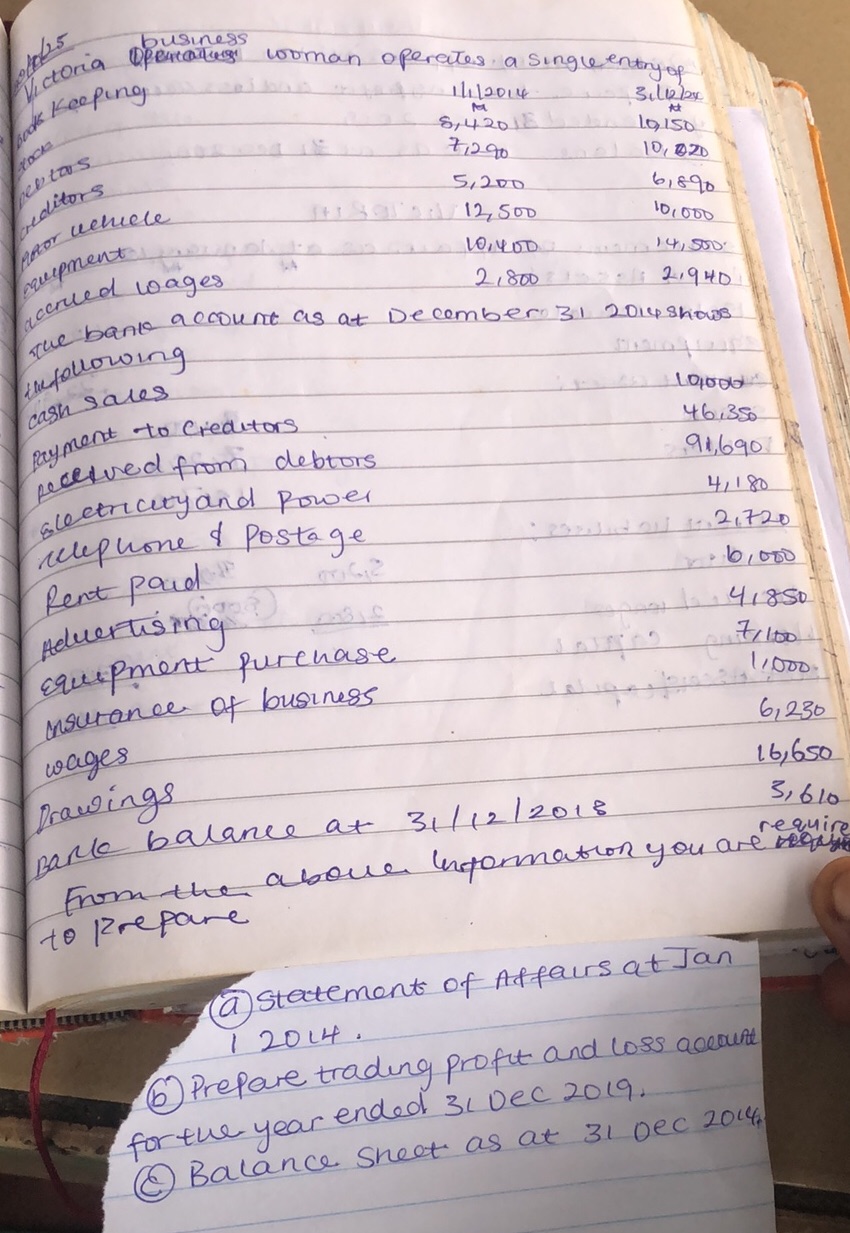 business
Victoria woman operates a single entry of
book keeping 1/1/2014 31/12/2014
₦ ₦
stock 8,420 10,150
Debtors 7,290 10,020
creditors 5,200 6,890
Motor vehicle 12,500 10,000
equipment 10,400 14,500
accrued wages 2,800 2,940
The bank account as at December 31 2014 shows
the following
cash sales 10,000
payment to creditors 46,350
received from debtors 91,690
Electricity and power 4,180
Telephone & Postage 2,720
Rent paid 6,000
Advertising 4,850
equipment purchase 7,100
Insurance of business 1,000
wages 6,230
Drawings 16,650
Bank balance at 31/12/2018 3,610
From the above Information you are require
to prepare
(a) Statement of Affairs at Jan
1 2014.
(b) Prepare trading profit and loss account
for the year ended 31 Dec 2019.
(c) Balance Sheet as at 31 Dec 2014.